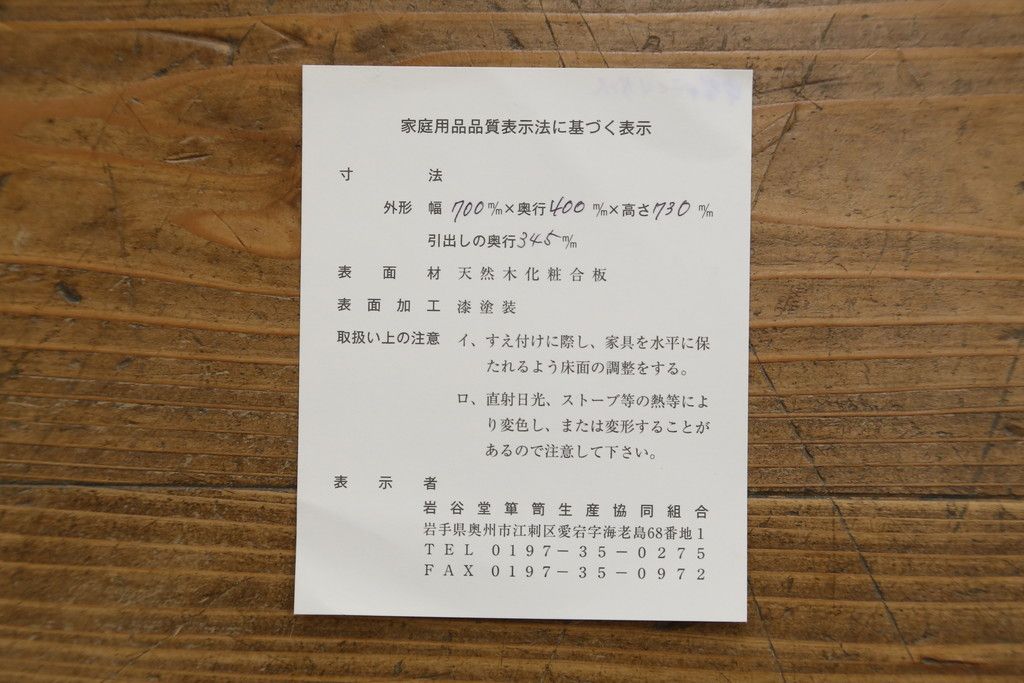 家庭用品品質表示法に基づく表示
寸法
外形 幅 700 m/m×奥行400 m/m×高さ730 m/m
引出しの奥行345m/m
表面材 天然木化粧合板
表面加工 漆塗装
取扱い上の注意 イ、すえ付けに際し、家具を水平に保
たれるよう床面の調整をする。
ロ、直射日光、ストーブ等の熱等によ
り変色し、または変形することが
あるので注意して下さい。
表示者
岩谷堂箪笥生産協同組合
岩手県奥州市江刺区愛宕字海老島68番地1
TEL 0197-35-0275
FAX 0197-35-0972